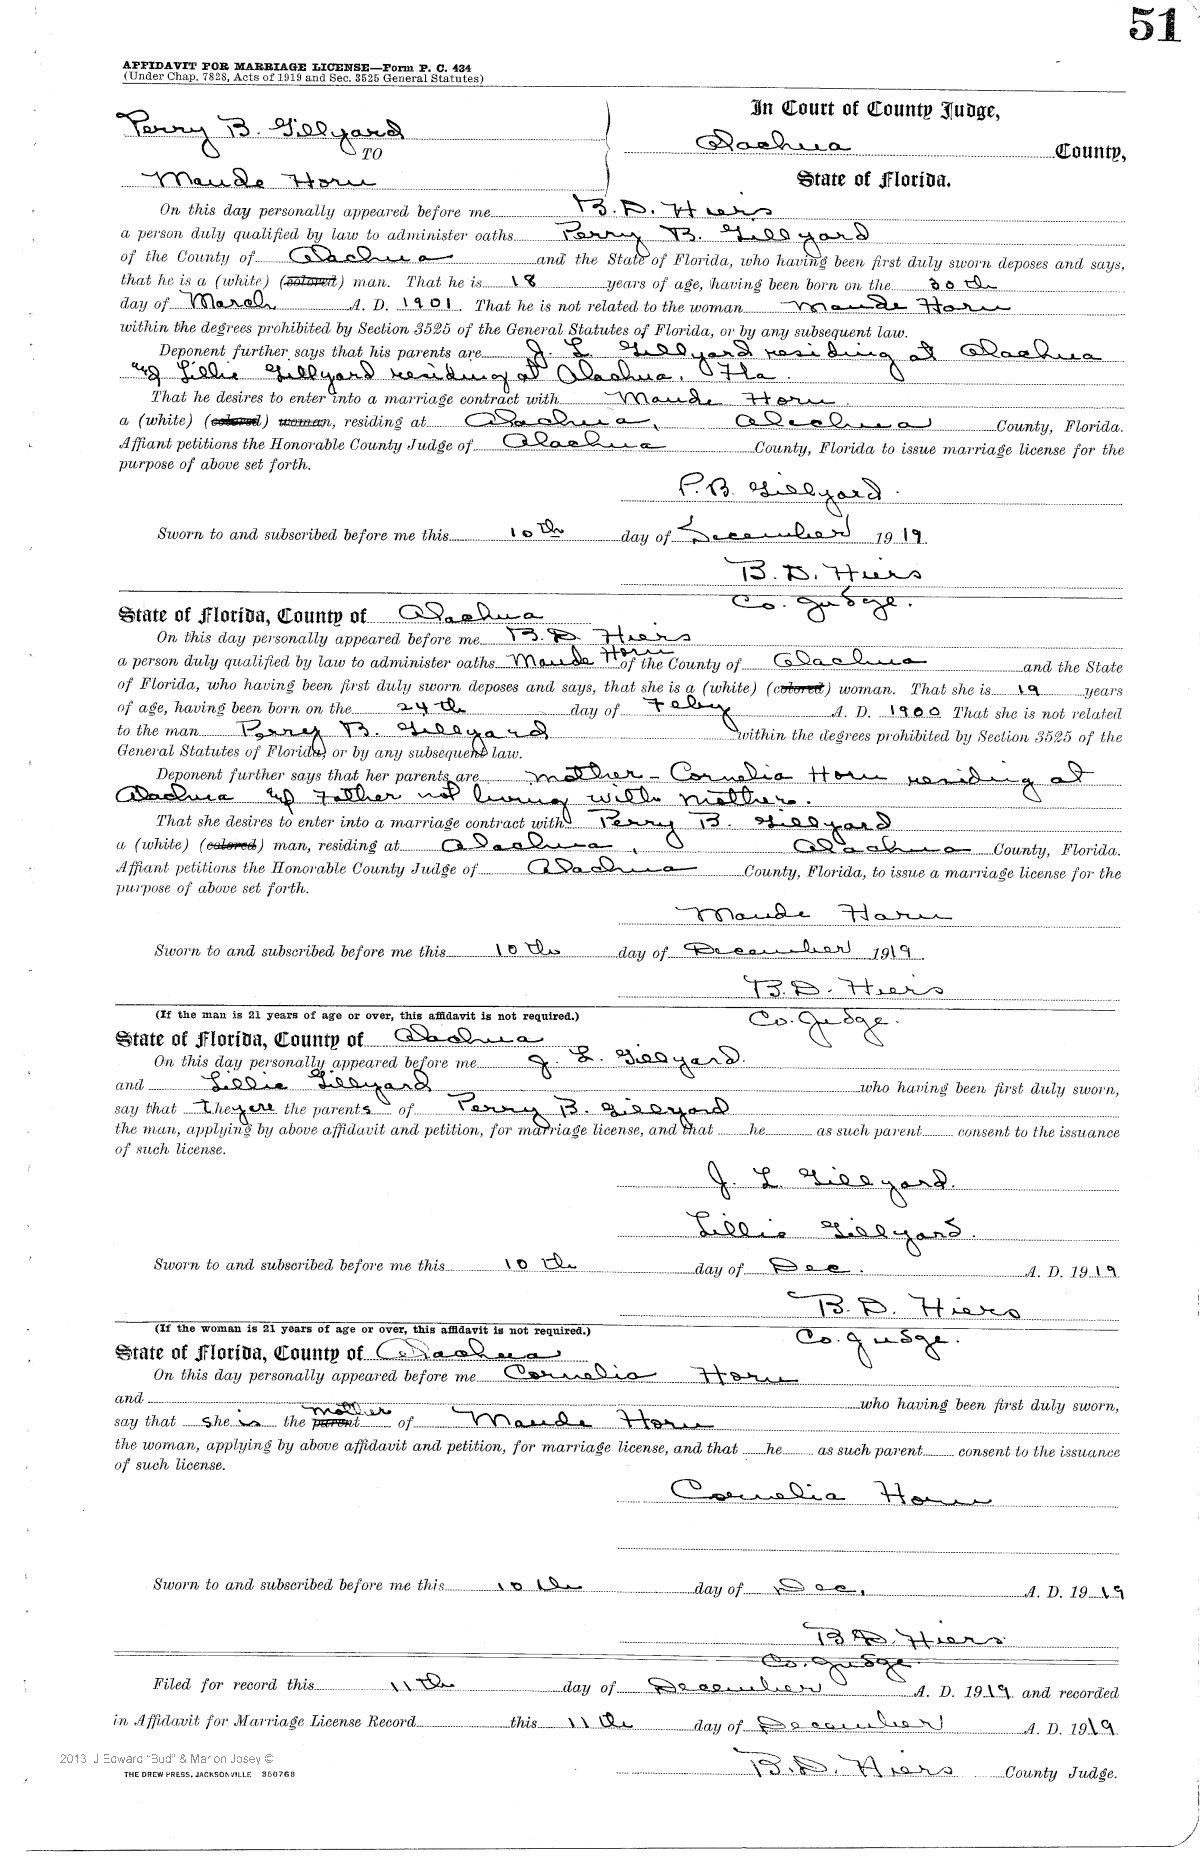 51
AFFIDAVIT FOR MARRIAGE LICENSE—Form P. C. 434
(Under Chap. 7828, Acts of 1919 and Sec. 3525 General Statutes)
In Court of County Judge,
Perry B. Gillyard
TO
Alachua County,
Maude Horn
State of Florida.
On this day personally appeared before me B. D. Hiers
a person duly qualified by law to administer oaths Perry B. Gillyard
of the County of Alachua and the State of Florida, who having been first duly sworn deposes and says,
that he is a (white) (colored) man. That he is 18 years of age, having been born on the 30th
day of March A. D. 1901. That he is not related to the woman Maude Horn
within the degrees prohibited by Section 3525 of the General Statutes of Florida, or by any subsequent law.
Deponent further says that his parents are J. L. Gillyard residing at Alachua
and Lillie Gillyard residing at Alachua, Fla.
That he desires to enter into a marriage contract with Maude Horn
a (white) (colored) woman, residing at Alachua, Alachua County, Florida.
Affiant petitions the Honorable County Judge of Alachua County, Florida to issue marriage license for the
purpose of above set forth.
P. B. Gillyard.
Sworn to and subscribed before me this 10th day of December 1919.
B. D. Hiers
Co. Judge.
State of Florida, County of Alachua
On this day personally appeared before me B. D. Hiers
a person duly qualified by law to administer oaths Maude Horn of the County of Alachua and the State
of Florida, who having been first duly sworn deposes and says, that she is a (white) (colored) woman. That she is 19 years
of age, having been born on the 24th day of Feby A. D. 1900 That she is not related
to the man Perry B. Gillyard within the degrees prohibited by Section 3525 of the
General Statutes of Florida, or by any subsequent law.
Deponent further says that her parents are mother - Cornelia Horn residing at
Alachua and Father not living with mother.
That she desires to enter into a marriage contract with Perry B. Gillyard
a (white) (colored) man, residing at Alachua, Alachua County, Florida.
Affiant petitions the Honorable County Judge of Alachua County, Florida, to issue a marriage license for the
purpose of above set forth.
Maude Horn
Sworn to and subscribed before me this 10th day of December 1919.
B. D. Hiers
Co. Judge.
(If the man is 21 years of age or over, this affidavit is not required.)
State of Florida, County of Alachua
On this day personally appeared before me J. L. Gillyard.
and Lillie Gillyard who having been first duly sworn,
say that they are the parents of Perry B. Gillyard
the man, applying by above affidavit and petition, for marriage license, and that he as such parent consent to the issuance
of such license.
J. L. Gillyard.
Lillie Gillyard.
Sworn to and subscribed before me this 10th day of Dec. A. D. 1919
B. D. Hiers
Co. Judge.
(If the woman is 21 years of age or over, this affidavit is not required.)
State of Florida, County of Alachua
On this day personally appeared before me Cornelia Horn
and who having been first duly sworn,
say that she is the parent mother of Maude Horn
the woman, applying by above affidavit and petition, for marriage license, and that he as such parent consent to the issuance
of such license.
Cornelia Horn
Sworn to and subscribed before me this 10th day of Dec. A. D. 1919
B. D. Hiers
Co. Judge
Filed for record this 11th day of December A. D. 1919 and recorded
in Affidavit for Marriage License Record this 11th day of December A. D. 1919
B. D. Hiers County Judge.
2013 J Edward "Bud" & Marion Josey ©
THE DREW PRESS, JACKSONVILLE 350768